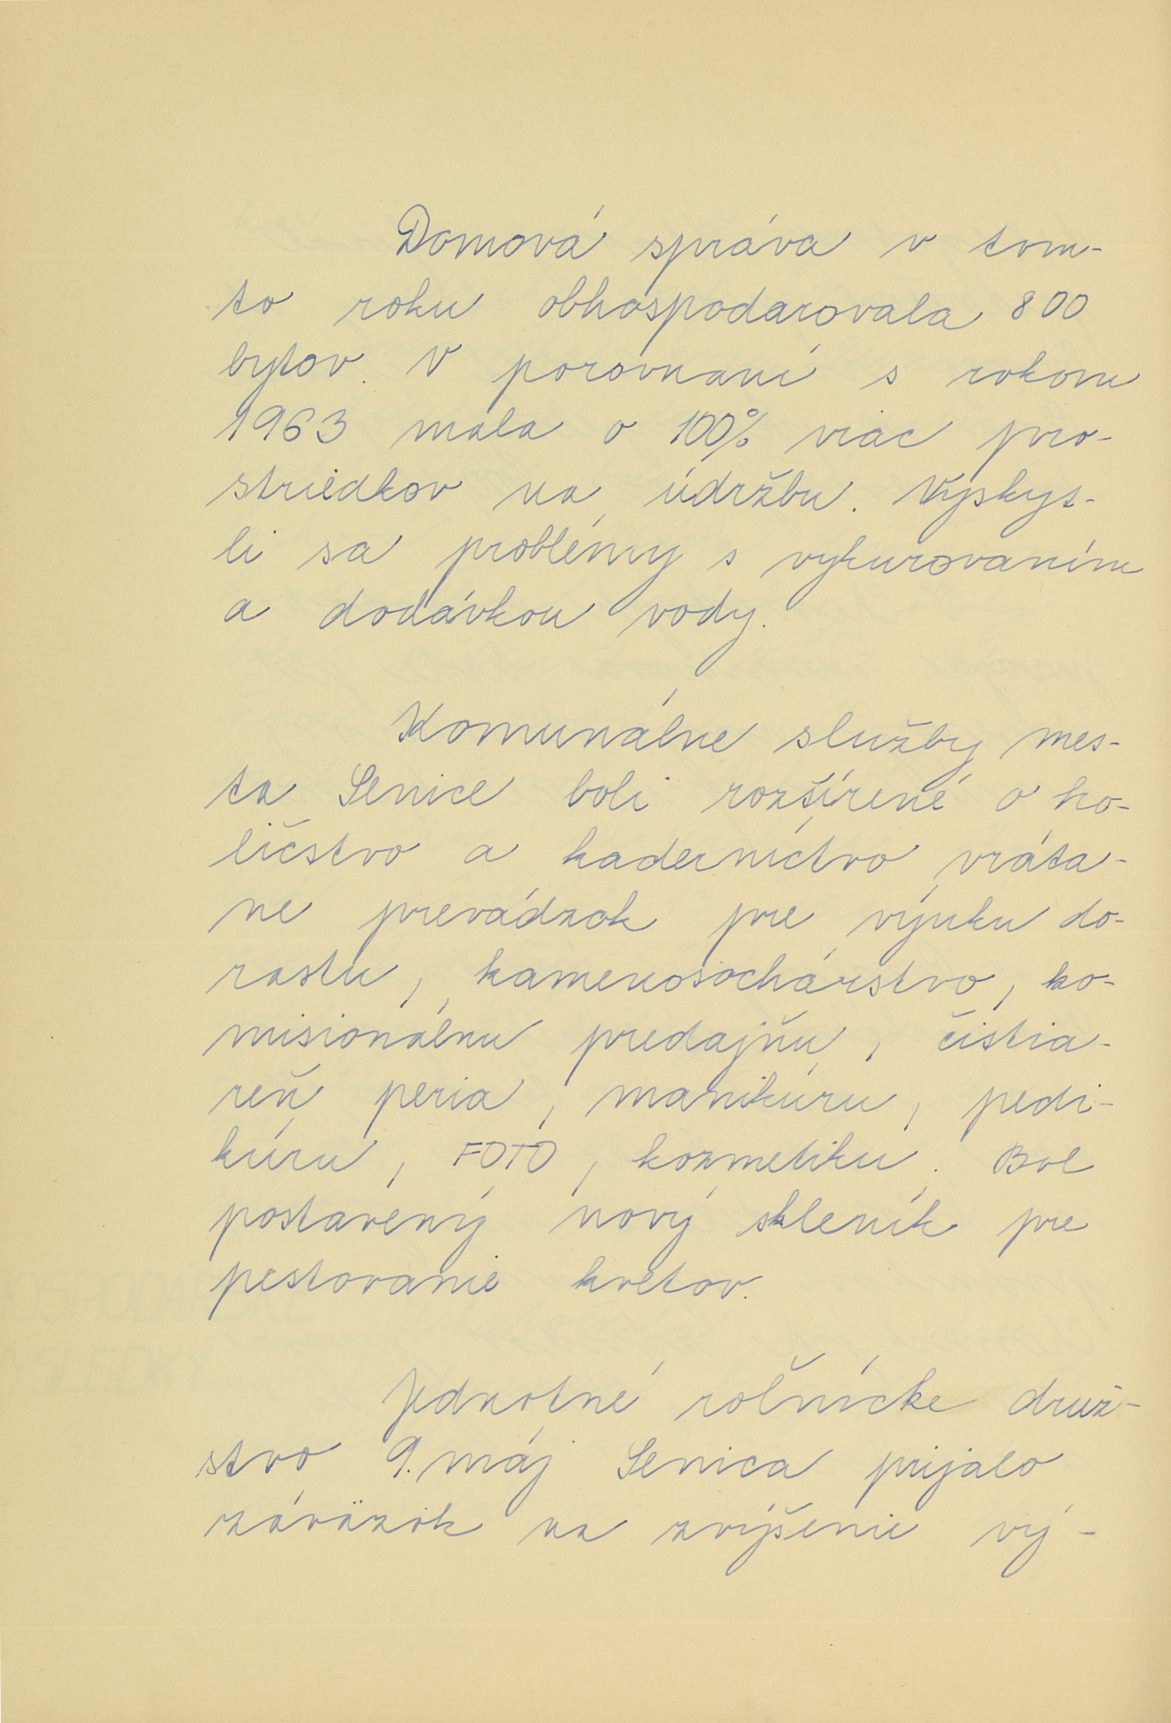 Domová správa v tom-
to roku obhospodarovala 800
bytov. V porovnaní s rokom
1963 mala o 100% viac pro-
striedkov na údržbu. Vyskyt-
li sa problémy s vykurovaním
a dodávkou vody.
Komunálne služby mes-
ta Senice boli rozšírené o ho-
ličstvo a kaderníctvo vráta-
ne prevádzok pre výuku do-
rastu, kamenosochárstvo, ko-
misionálnu predajňu, čistia-
reň peria, manikúru, pedi-
kúru, FOTO, kozmetiku. Bol
postavený nový skleník pre
pestovanie kvetov.
Jednotné roľnícke druž-
stvo 9. máj Senica prijalo
záväzok na zvýšenie vý-